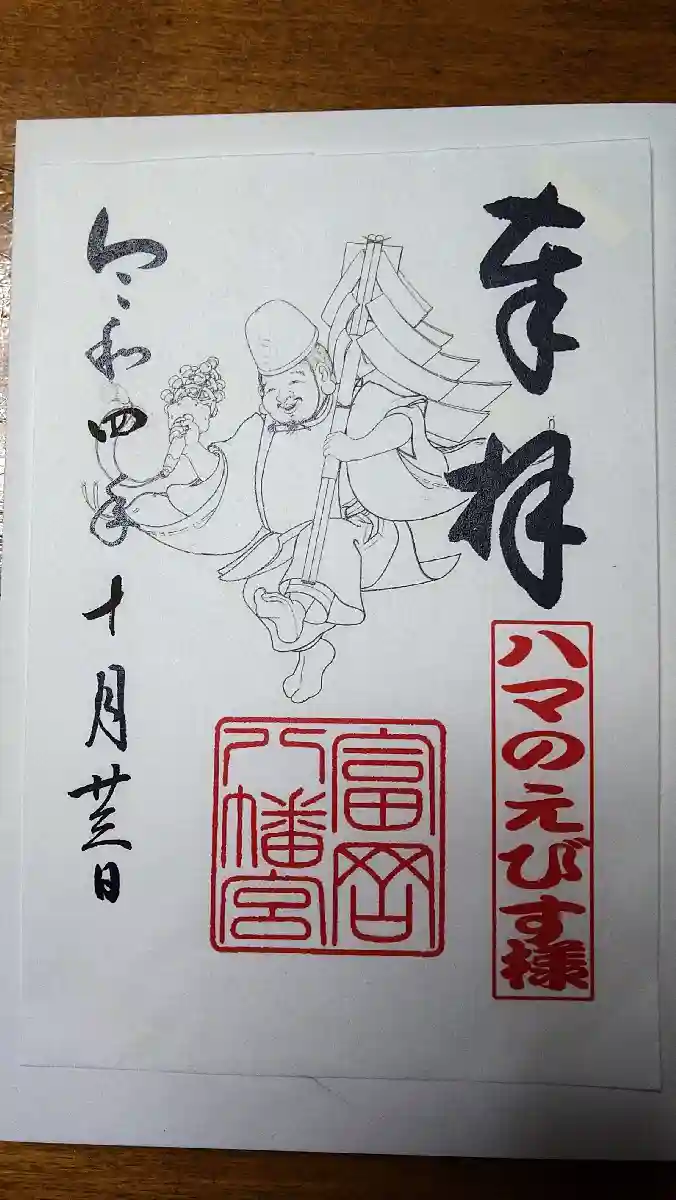 奉拝
ハマのえびす様
富岡
八幡宮
令和四年十月廿三日